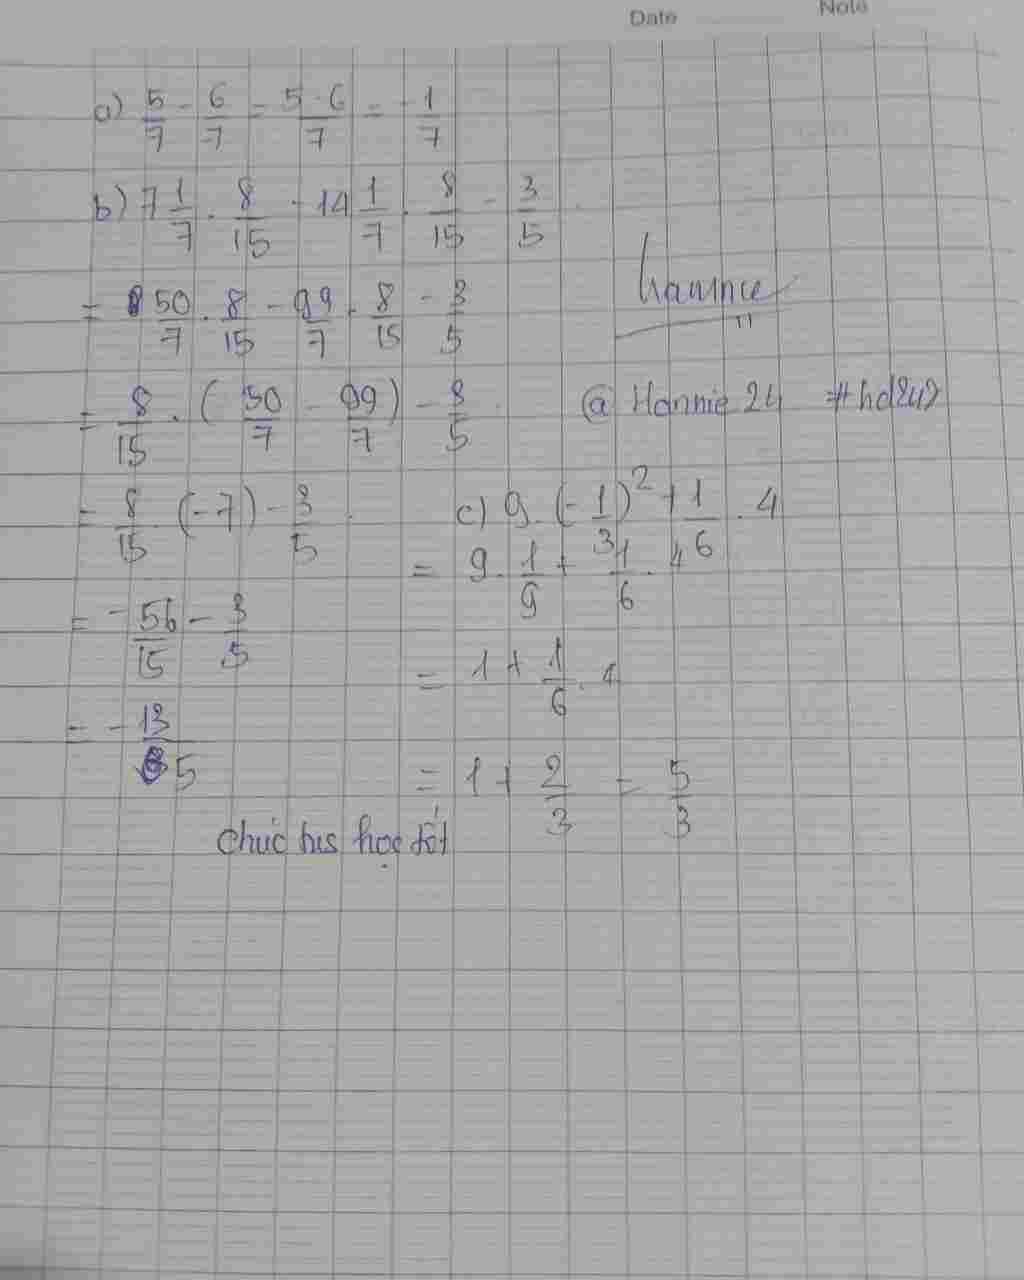 Date Note
a) 5/7 - 6/7 = 5-6/7 = -1/7
b) 7 1/7 . 8/15 - 14 1/7 . 8/15 - 3/5
= 50/7 . 8/15 - 99/7 . 8/15 - 3/5
hannie
= 8/15 . (50/7 - 99/7) - 3/5
@ Hannie 24 #hd247
= 8/15 . (-7) - 3/5
= -56/15 - 3/5
= -13/5
c) 9. (-1/3)² + 1/6 . 4
= 9. 1/9 + 1/6 . 4
= 1 + 1/6 . 4
= 1 + 2/3 = 5/3
Chúc bus học tốt